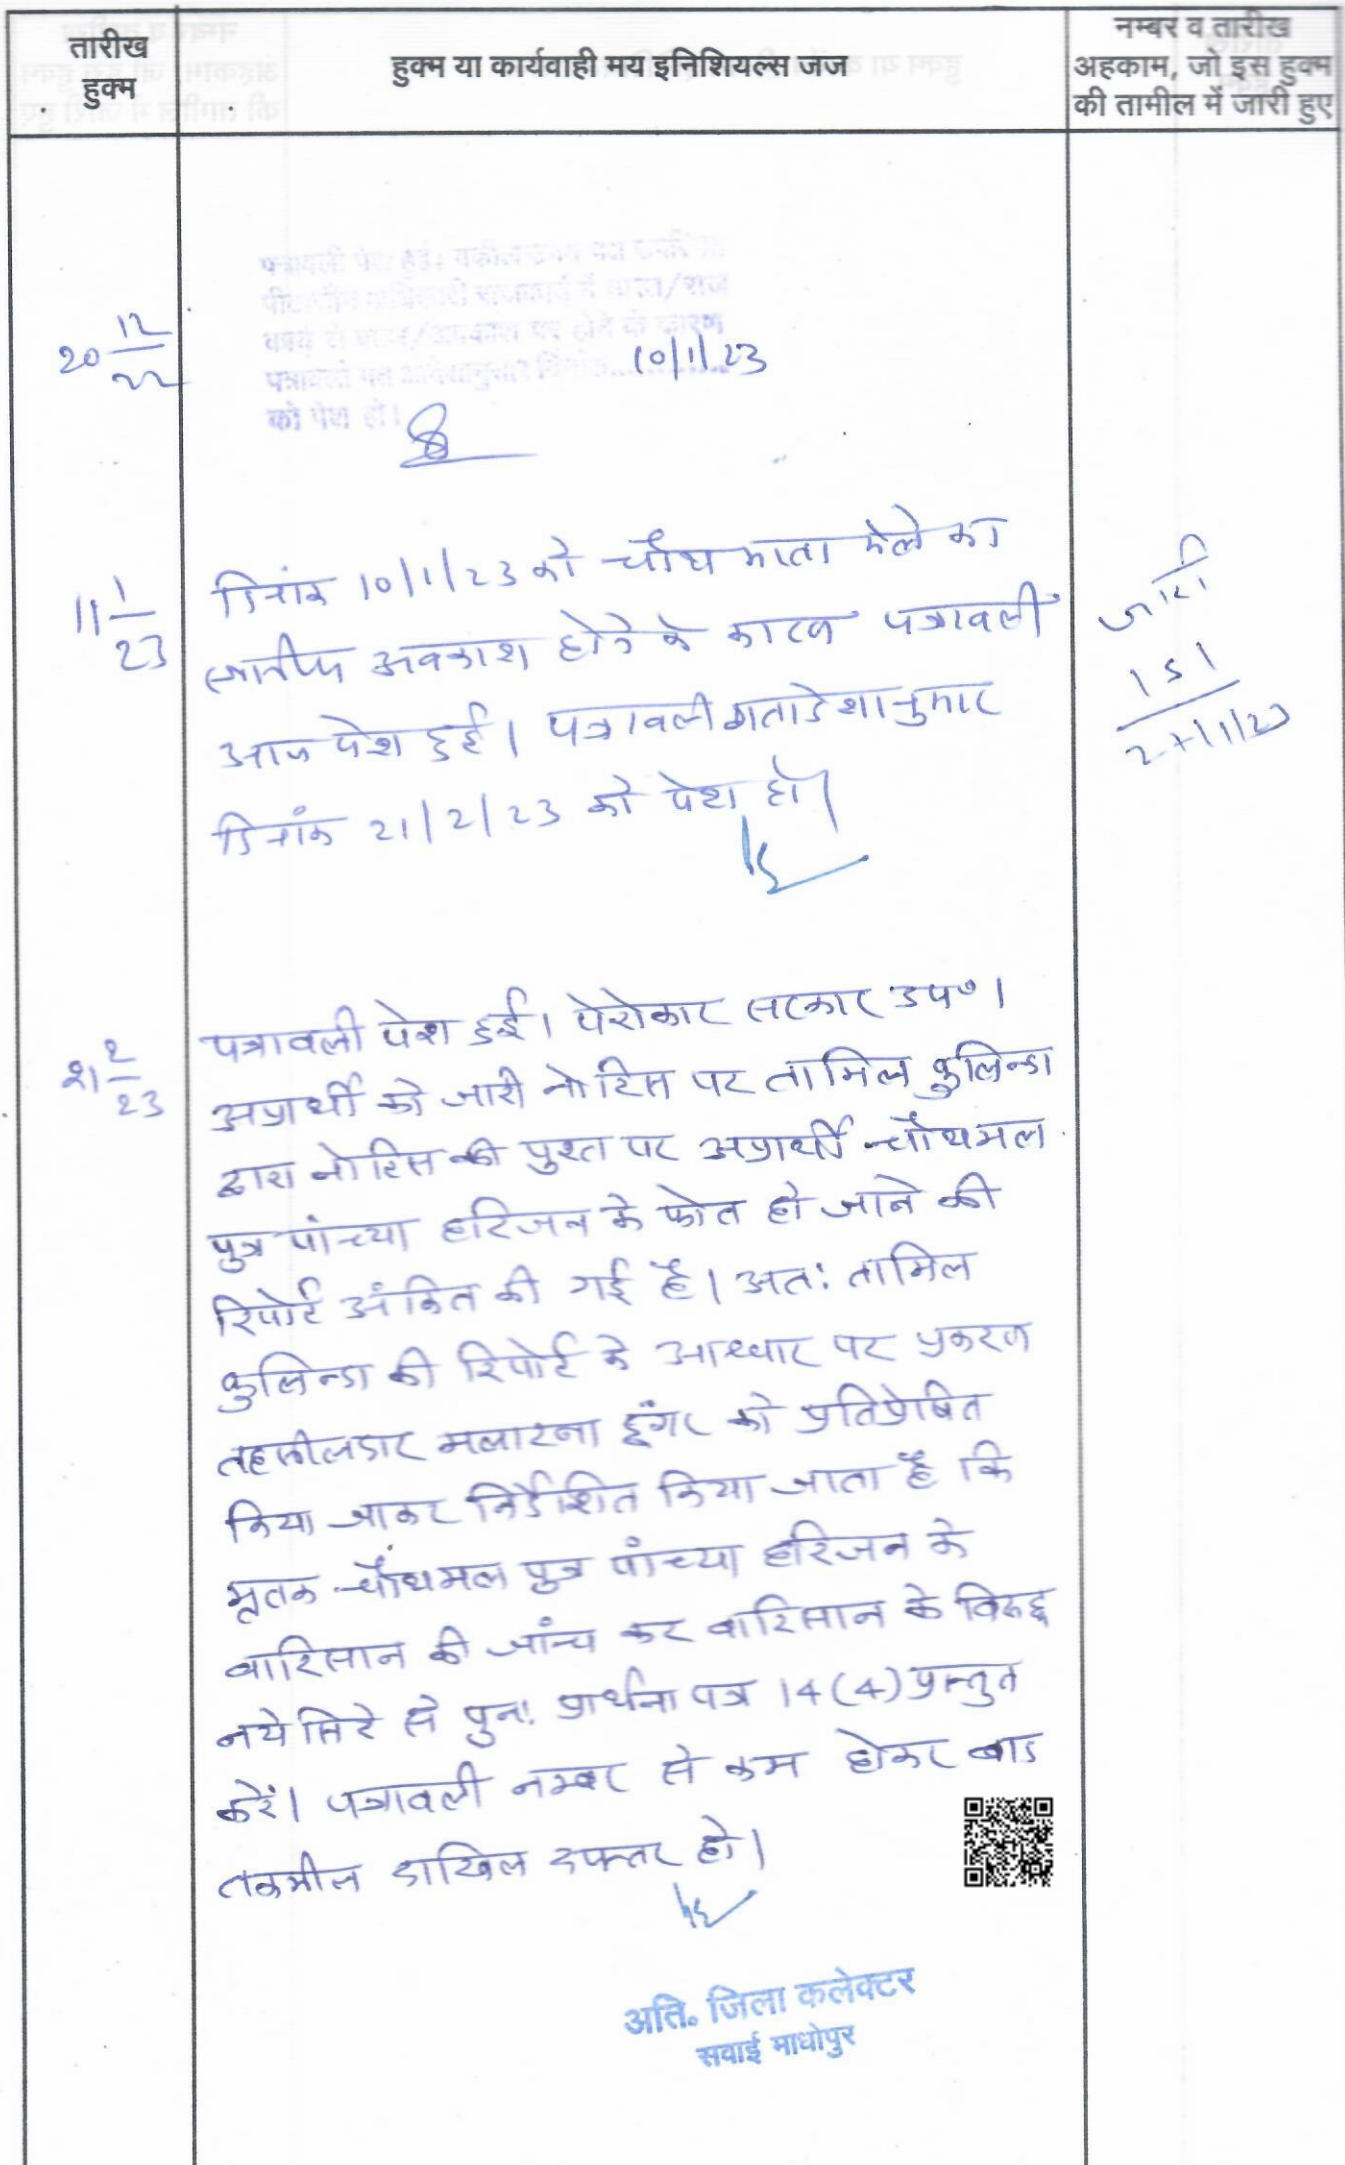 तारीख
हुक्म
हुक्म या कार्यवाही मय इनिशियल्स जज
नम्बर व तारीख
अहकाम, जो इस हुक्म
की तामील में जारी हुए
20 12/22
पत्रावली पेश हुई। वकील उभय पक्ष
पीठासीन अधिकारी राजकार्य में व्यस्त/राज
कार्य से बाहर/अवकाश पर होने के कारण
पत्रावली गत आदेशानुसार दिनांक............ 10/1/23
को पेश हो।
11 1/23
दिनांक 10/1/23 को चौथ माता मेले का
स्थानीय अवकाश होने के कारण पत्रावली
आज पेश हुई। पत्रावली गतादेशानुसार
दिनांक 21/2/23 को पेश हो।
जारी
151
27/1/23
21 2/23
पत्रावली पेश हुई। पेरोकार सरकार उप०।
अप्रार्थी को जारी नोटिस पर तामिल कुलिन्दा
द्वारा नोटिस की पुश्त पर अप्रार्थी चौथमल
पुत्र पांच्या हरिजन के फोत हो जाने की
रिपोर्ट अंकित की गई है। अत: तामिल
कुलिन्दा की रिपोर्ट के आधार पर प्रकरण
तहसीलदार मलारना डूंगर को प्रतिप्रेषित
किया जाकर निर्देशित किया जाता है कि
मृतक चौथमल पुत्र पांच्या हरिजन के
वारिसान की जांच कर वारिसान के विरुद्ध
नये सिरे से पुन: प्रार्थना पत्र 14(4) प्रस्तुत
करें। पत्रावली नम्बर से कम होकर बाद
तकमील दाखिल दफ्तर हो।
अति. जिला कलेक्टर
सवाई माधोपुर